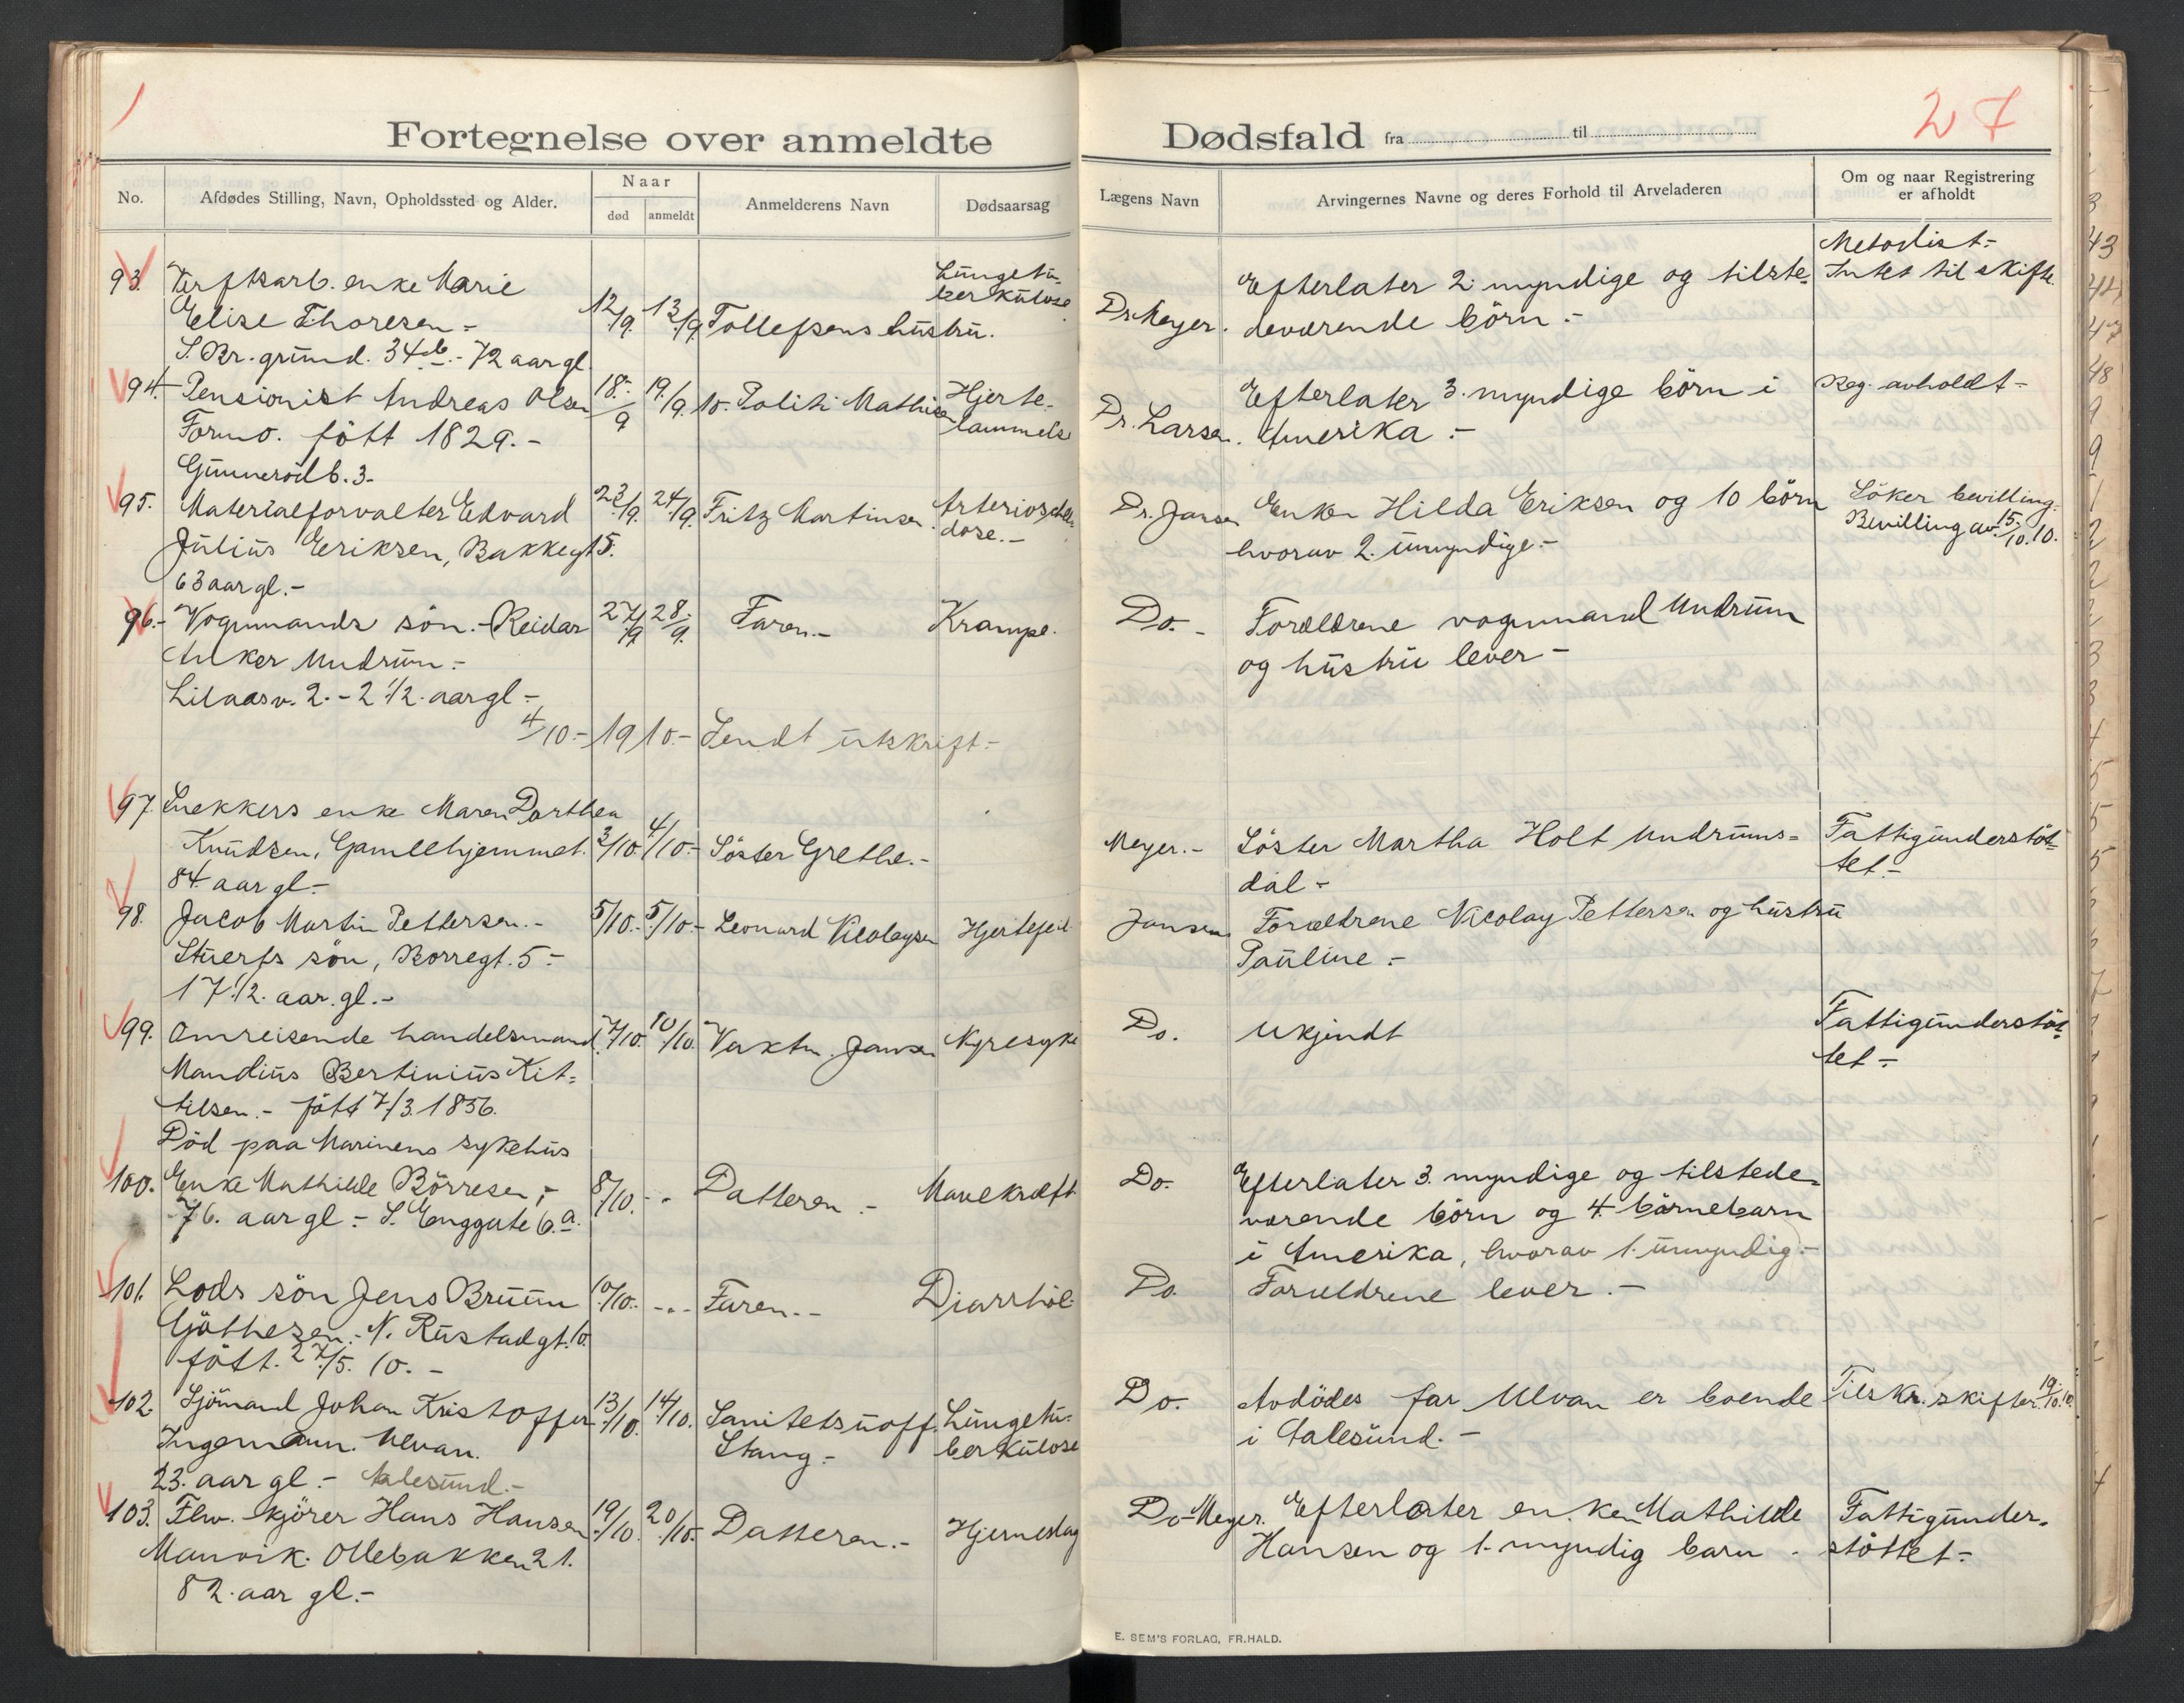 27
Fortegnelse over anmeldte Dødsfald fra til
No.
Afdødes Stilling, Navn, Opholdssted og Alder.
Naar
død
anmeldt
Anmelderens Navn
Dødsaarsag
Lægens Navn
Arvingernes Navne og deres Forhold til Arveladeren
Om og naar Registrering
er afholdt
93. Verftsarb. enke Marie
Elise Thoresen -
S. Br. grund. 34 b. - 72 aar gl.
12/9. 13/9. Tollefsens hustru.
Lungetu-
berkulose
Dr. Meyer.
Efterlater 2. myndige og tilste-
deværende börn. -
Metodist. -
Intet til skifte.
94. Pensionist Andreas Olsen
Formo. fött 1829. -
Gunnerödb. 3.
18/9 19/9. 10. Politi Mathisen
Hjerte-
lammelse
Dr. Larsen.
Efterlater 3. myndige börn i
Amerika. -
Reg. avholdt -
95. Materialforvalter Edvard
Julius Eriksen, Bakkegt 5.
63 aar gl. -
23/9. 24/9. Fritz Martinsen.
Arterioscle-
rose. -
Dr. Jansen
Enken Hilda Eriksen og 10 börn
hvorav 2. umyndige. -
Söker bevilling.
Bevilling av 15/10. 10.
96. - Vognmands sön. - Reidar
Anker Undrum. -
Lilaasv. 2. - 2 1/2. aar gl -
27/9 28/9. Faren. -
Krampe.
Do. -
Forældrene vognmand Undrum
og hustru lever -
4/10. - 1910. - Sendt utskrift. -
97. Snekkers enke Maren Dorthea
Knudsen, Gamlehjemmet.
84. aar gl. -
3/10. 4/10. - Söster Grethe. -
Meyer. -
Söster Martha Holt Undrums-
dal -
Fattigunderstöt-
tet. -
98. Jacob Martin Pettersen. -
Stuerts sön, Borregt. 5 -
17 1/2. aar. gl. -
5/10. - 5/10. - Leonard Nicolaysen
Hjertefeil
Jansen
Forældrene Nicolay Pettersen og hustru
Pauline. -
99. Omreisende handelsmand
Mandius Bertinius Kit-
tilsen. - fött 7/3. 1856.
Död paa Marinens sykehus
7/10. 10/10. Vaktm. Jansen
Nyresyke
Do.
Ukjendt
Fattigunderstöt-
tet. -
100. Enke Mathilde Börresen, -
76. aar gl. - S. Enggate 6. a.
8/10. - „
Datteren. -
Mavekræft
Do.
Efterlater 3. myndige og tilstede-
værende börn og 4. börnebarn
i Amerika, hvorav 1. umyndig. -
101. Lods sön Jens Bruun
Gjöthesen. - N. Rustadgt. 10.
fött. 27/5. 10. -
10/10. - „ - Faren. -
Do.
Forældrene lever. -
102. Sjömand Johan Kristoffer
Ingemann. Ulvan.
23. aar gl. - Aalesund. -
13/10. 14/10. Sanitetsuoff.
Stang. -
Lungetu-
berkulose
Do.
Avdödes far Ulvan er boende
i Aalesund. -
Tilskr. skifter. 19/10. 10.
103. Fhv. kjörer Hans Hansen
Manvik. Ollebakken 21.
82. aar gl. -
19/10. 20/10. Datteren. -
Hjerneslag
Do - Meyer.
Efterlater enken Mathilde
Hansen og 1. myndig barn.
Fattigunder-
stöttet -
E. SEM'S FORLAG, FR.HALD.